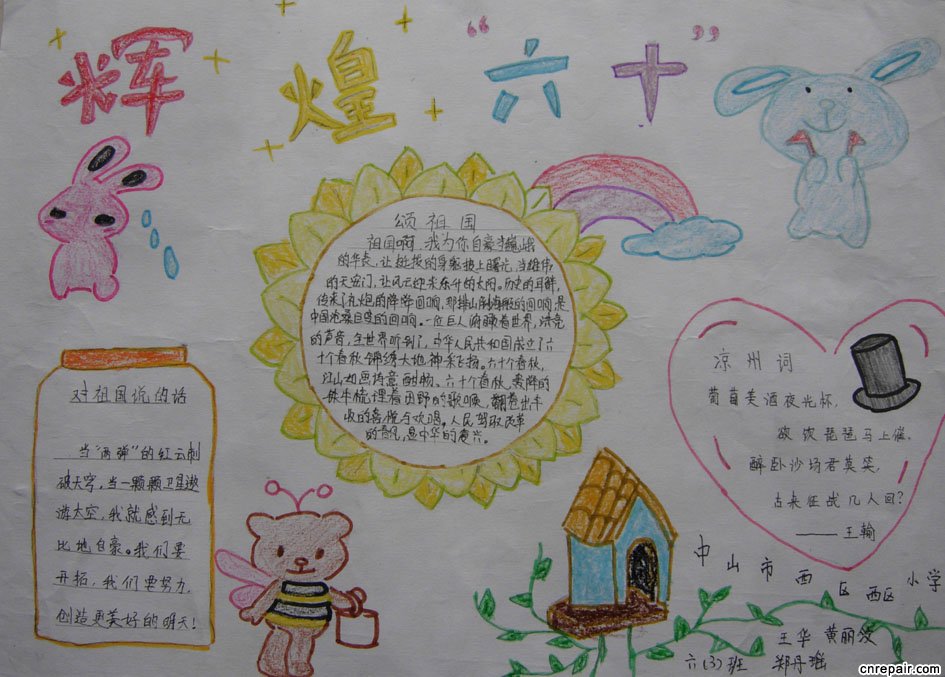 辉煌“六十”
颂祖国
祖国啊,我为你自豪!当巍峨
的华表,让挺拔的身躯披上曙光,当雄伟
的天安门,让风云迎来东升的太阳。历史的耳畔,
传来了礼炮的隆隆回响,那排山倒海般的回响,是
中国沧桑巨变的回响。一位巨人俯瞰着世界,洪亮
的声音,全世界听到了,中华人民共和国成立了!六
十个春秋,锦绣大地神采飞扬。六十个春秋,
江山如画诗意酣畅。六十个春秋,老
铁牛梳理着田野的歌喉,翻卷出丰
收的喜悦与欢唱。人民驾驭改革
的春风,是中华的复兴。
对祖国说的话
当“两弹”的红云刺
破天穹,当一颗颗卫星遨
游太空,我就感到无
比地自豪。我们要
开拓,我们要努力,
创造更美好的明天!
凉州词
葡萄美酒夜光杯,
欲饮琵琶马上催,
醉卧沙场君莫笑,
古来征战几人回?
——王翰
中山市西区西区小学
王华 黄丽
六(3)班 郑丹瑶
cnrepair.com